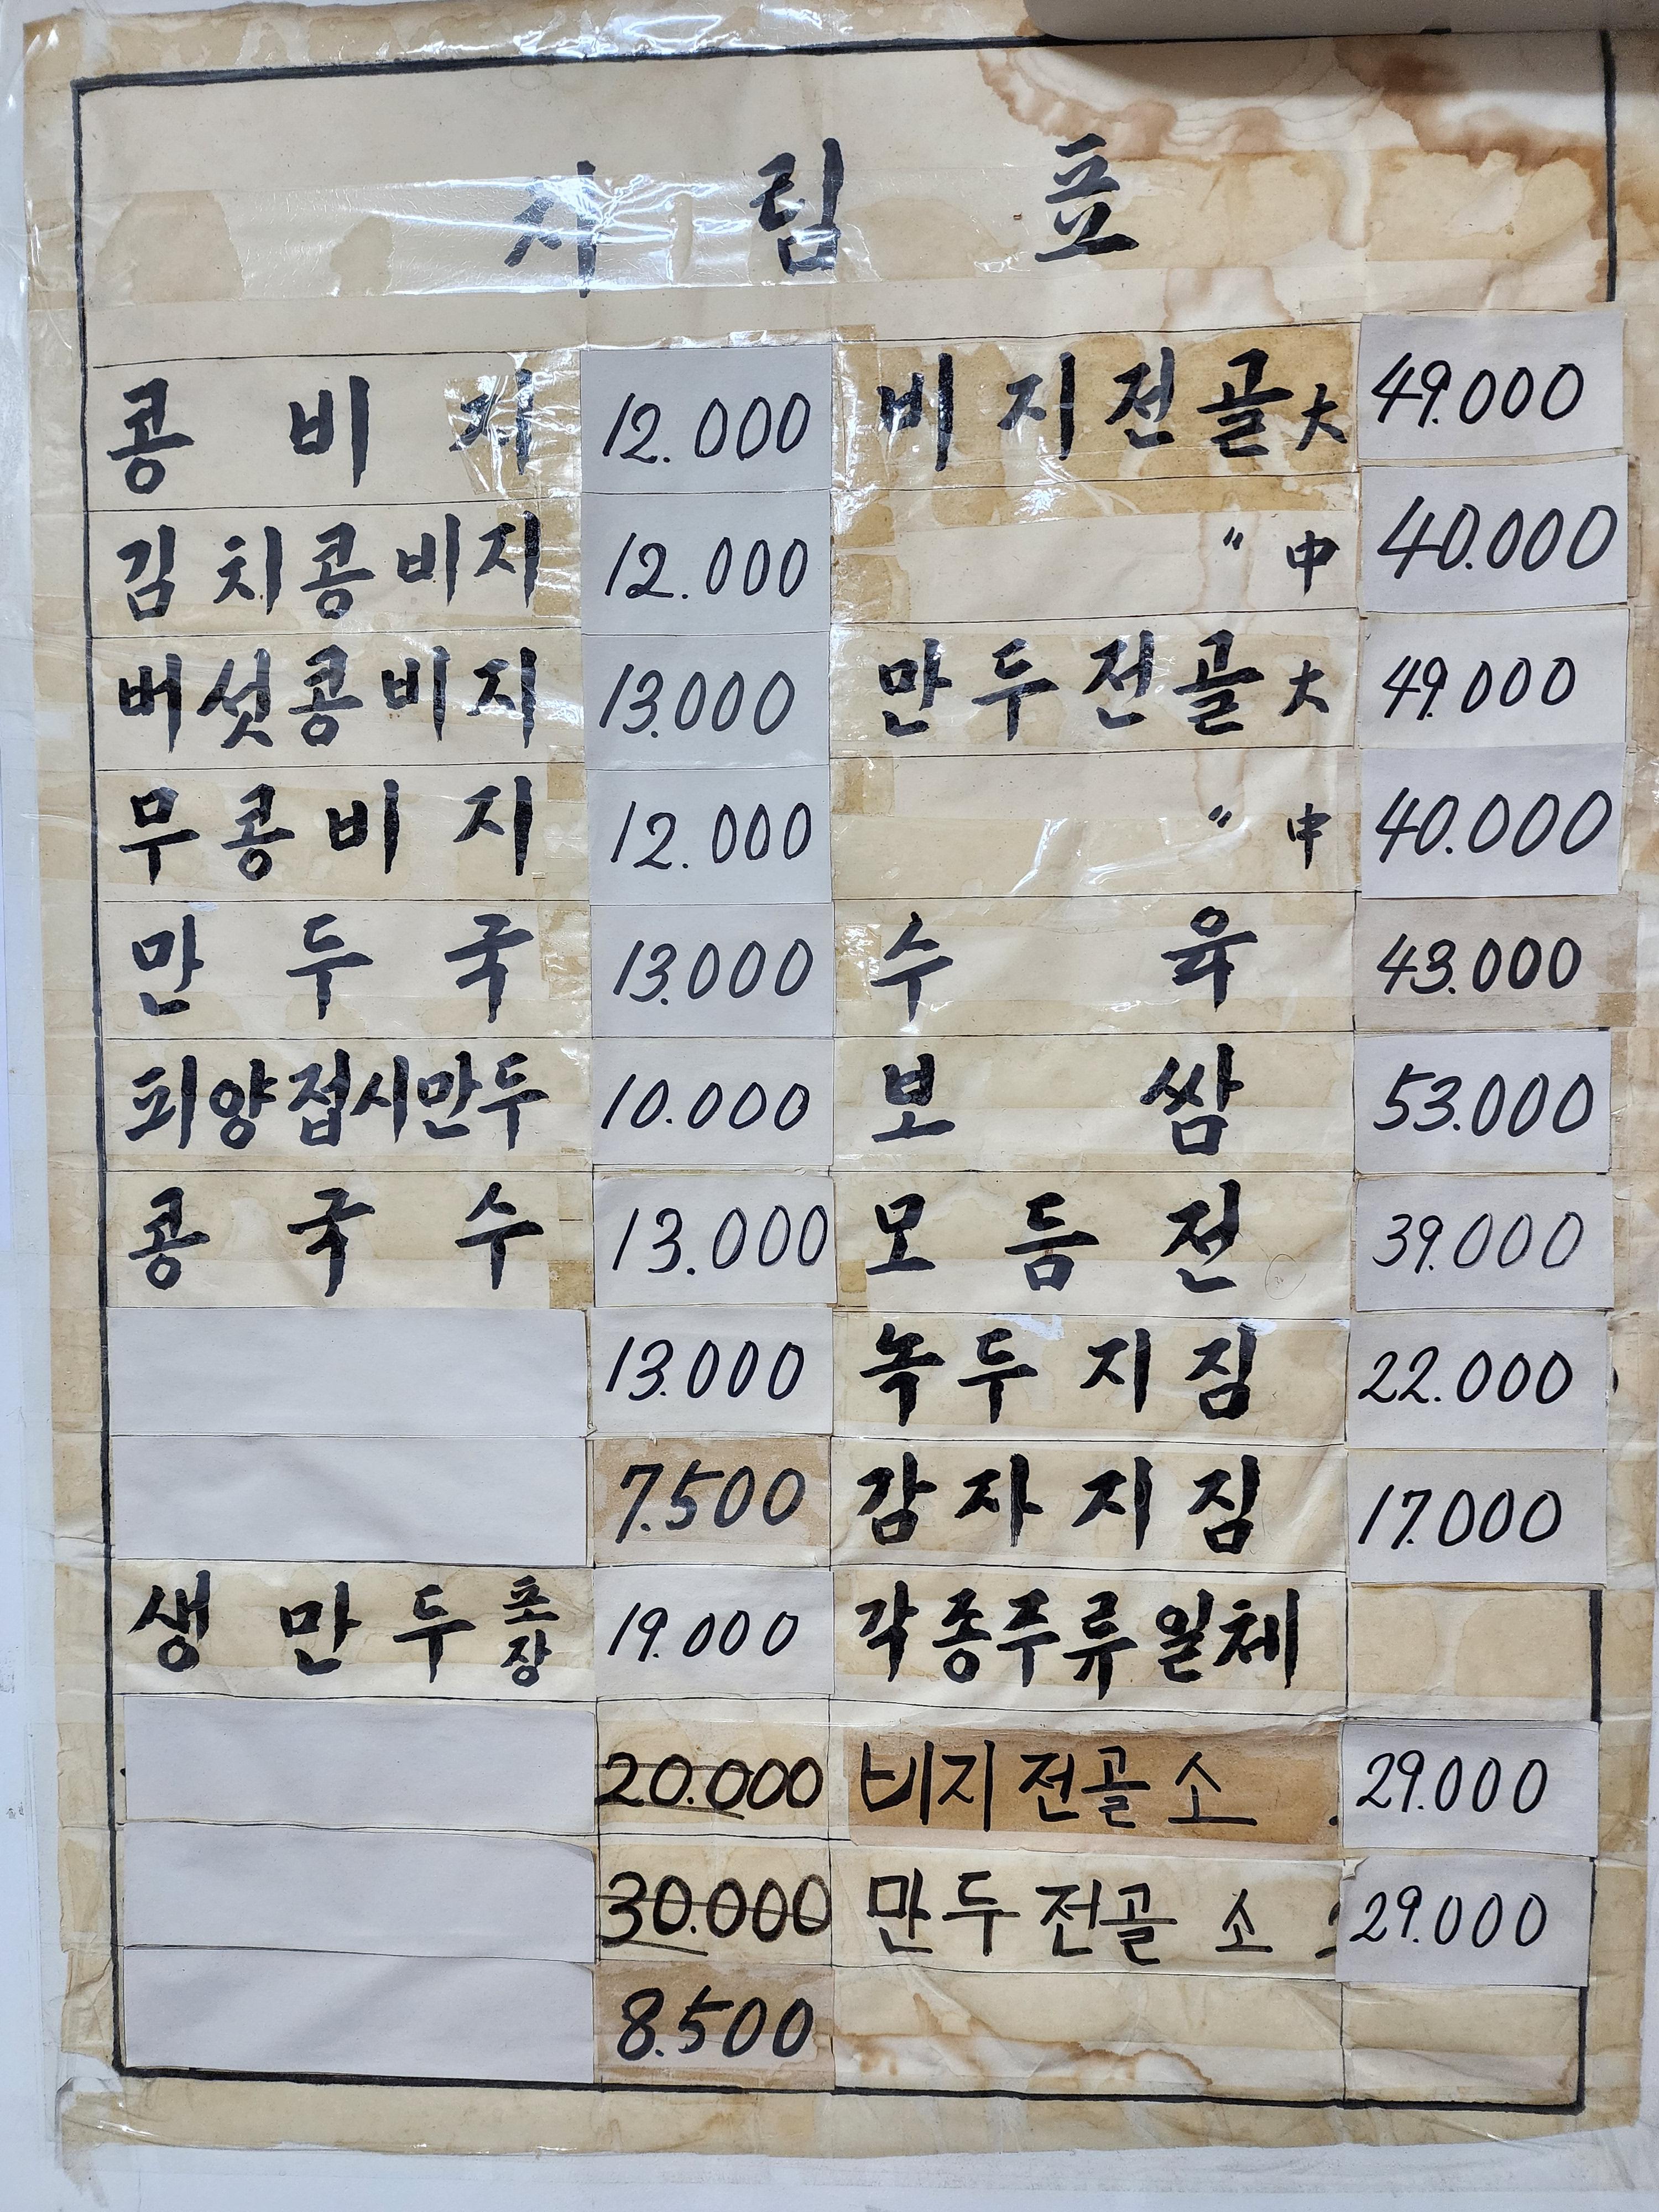 차림표
콩비지 12.000
김치콩비지 12.000
버섯콩비지 13.000
무콩비지 12.000
만두국 13.000
피양접시만두 10.000
콩국수 13.000
13.000
7.500
생만두포장 19.000
20.000
30.000
8.500
비지전골大 49.000
〃 中 40.000
만두전골大 49.000
〃 中 40.000
수육 43.000
보쌈 53.000
모듬전 39.000
녹두지짐 22.000
감자지짐 17.000
각종주류일체
비지전골 소 29.000
만두전골 소 29.000